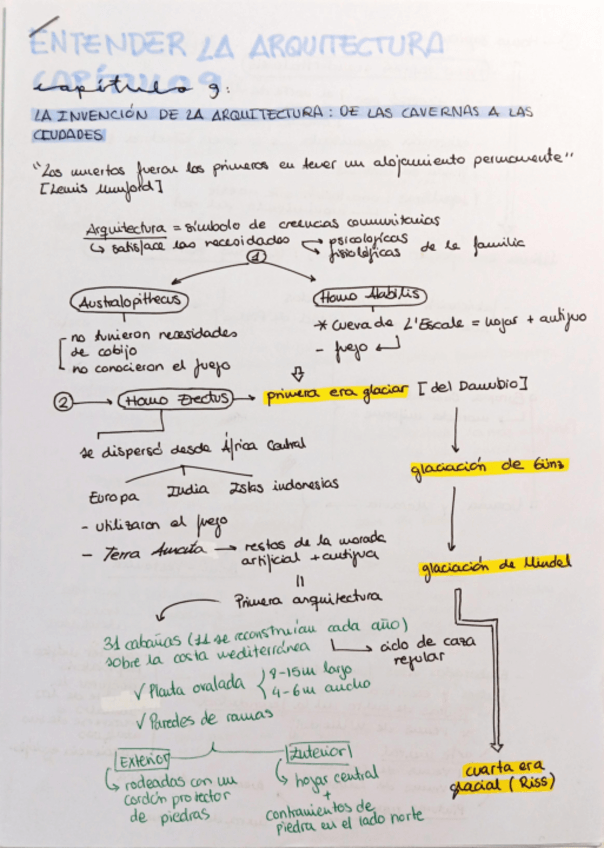 ENTENDER LA ARQUITECTURA
CAPÍTULO 9
capítulo 9:
LA INVENCIÓN DE LA ARQUITECTURA: DE LAS CAVERNAS A LAS
CIUDADES
"Los muertos fueron los primeros en tener un alojamiento permanente"
[Lewis Munford]
Arquitectura = símbolo de creencias comunitarias
↳ satisface las necesidades → psicológicas
fisiológicas de la familia
1
Australopithecus
Homo Habilis
no tuvieron necesidades
de cobijo
no conocieron el fuego
* cueva de L'Escale = hogar + antiguo
- fuego ↲
2 → Homo Erectus → primera era glaciar [del Danubio]
se dispersó desde África Central
Europa India Islas indonesias
glaciación de Günz
- utilizaron el fuego
- Terra Amata → restos de la morada
artificial + antigua
glaciación de Mindel
Primera arquitectura
31 cabañas (11 se reconstruían cada año)
sobre la costa mediterránea
ciclo de caza
regular
✓ Planta ovalada { 8-15m largo
4-6m ancho
✓ Paredes de ramas
Exterior
↳ rodeadas con un
cordón protector
de piedras
Interior
↳ hogar central
+
contravientos de
piedra en el lado norte
cuarta era
glacial (Riss)